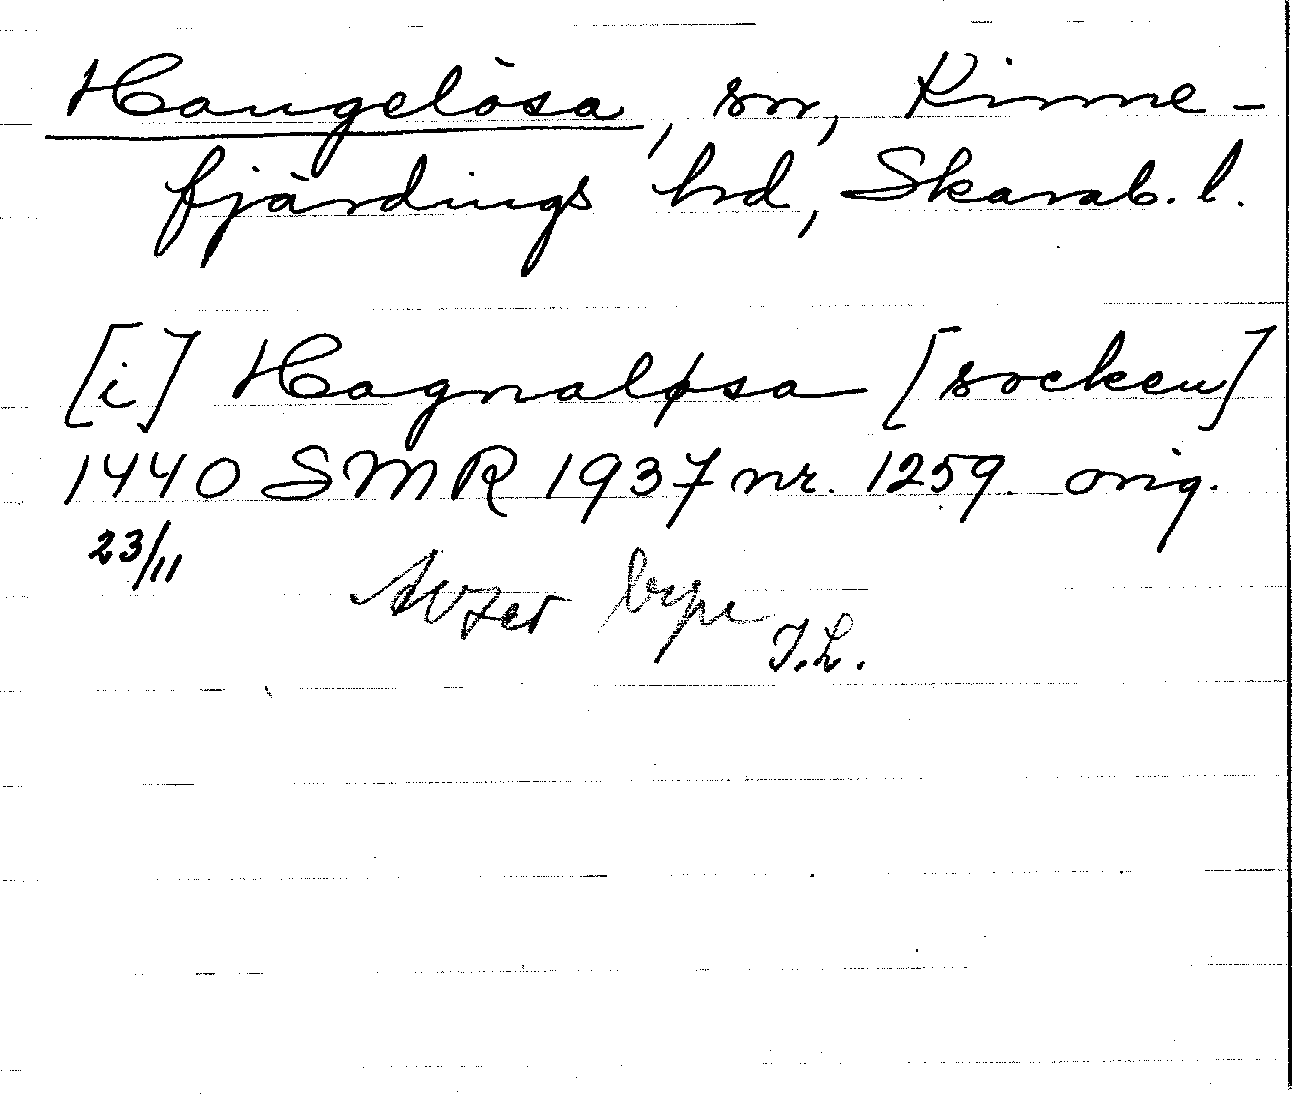 Hangelösa, sn, Kinne-
fjärdings hd, Skarab. l.
[i] Hagnaløsa [socken]
1440 SMR 1937 nr. 1259 orig.
23/11
Avser byn
I.L.